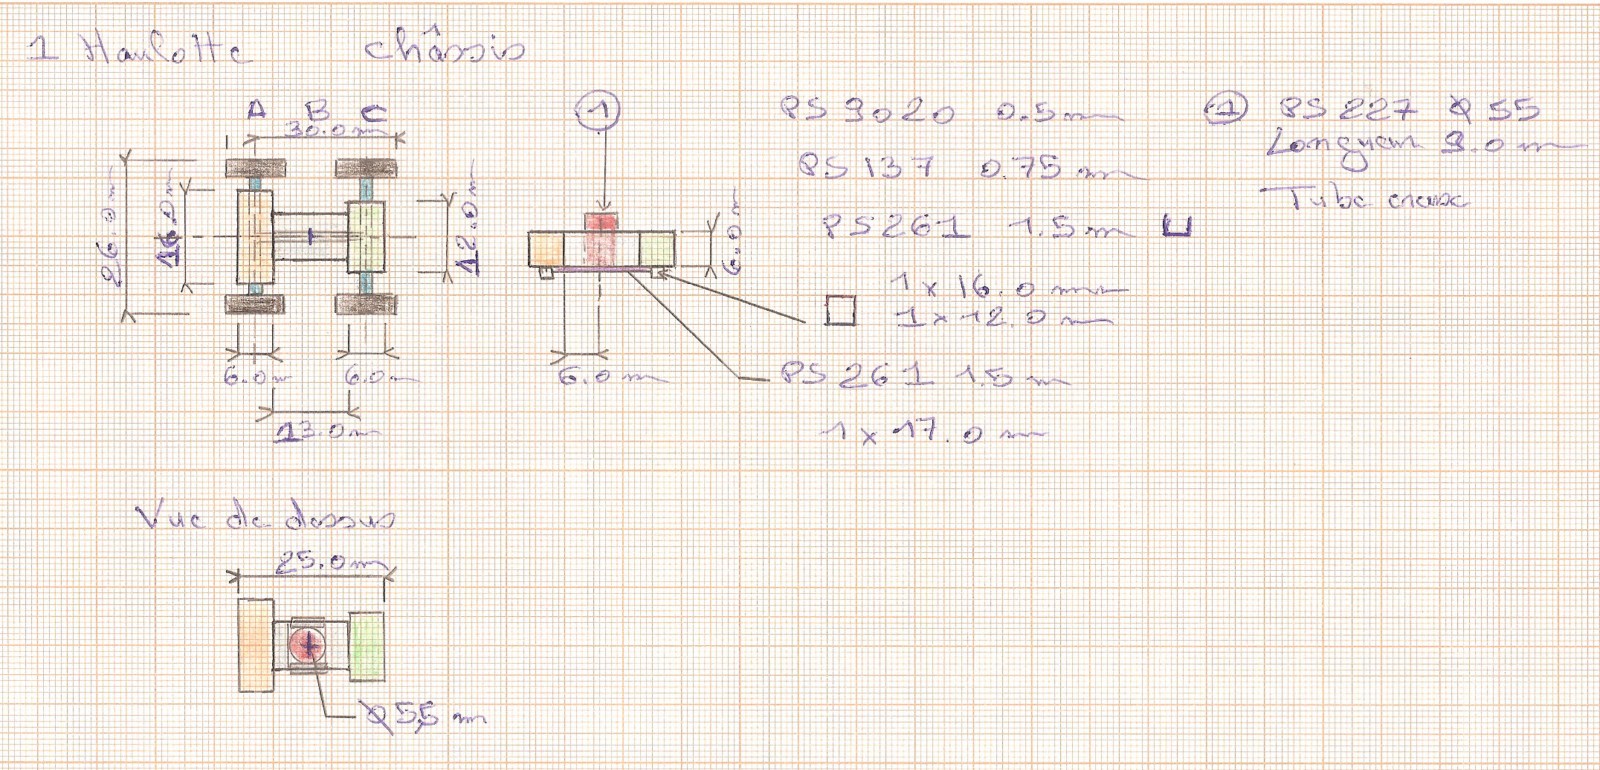 1 Haulotte châssis
A B C
30.0 m
26.0 m
16.0 m
12.0 m
6.0 m
6.0 m
13.0 m
1
6.0 m
6.0 m
PS 9020 0.5 m
PS 137 0.75 m
PS 261 1.5 m
1 x 16.0 m
1 x 12.0 m
PS 261 1.5 m
1 x 17.0 m
1 PS 227 Ø 55
Longueur 9.0 m
Tube creux
Vue de dessus
25.0 m
Ø 5,5 m